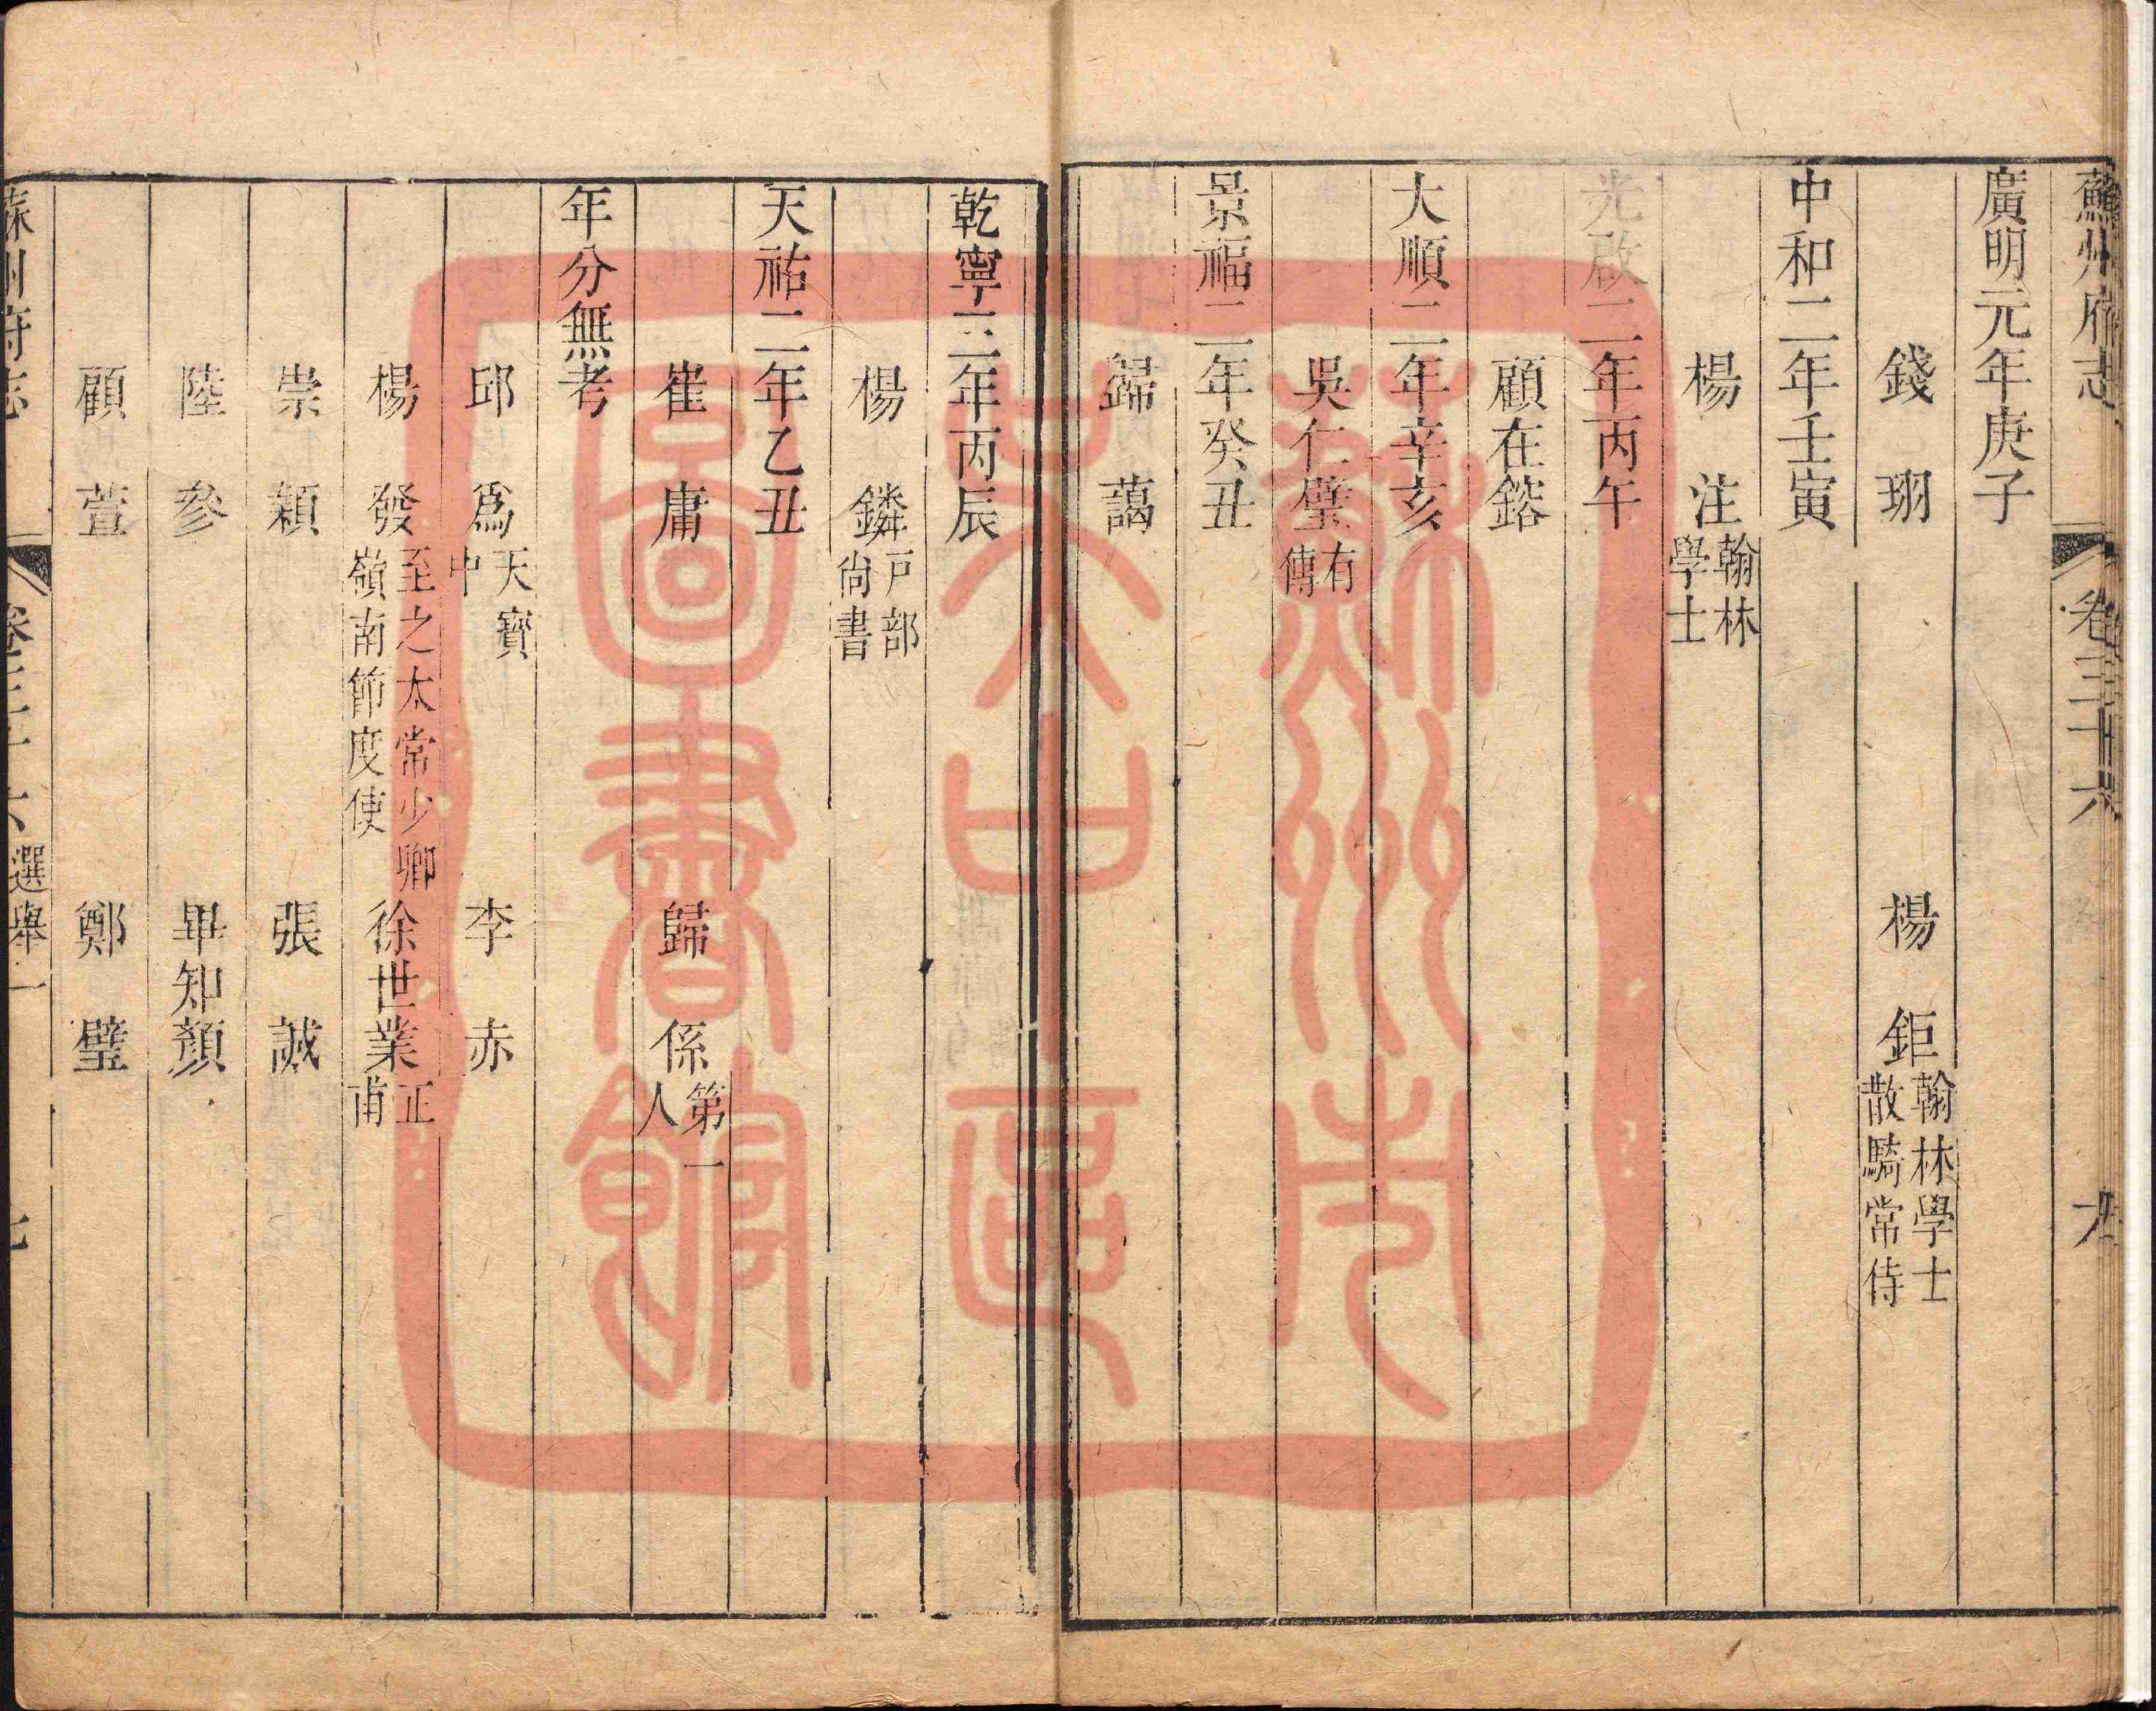 蘇州府志 卷三十六
廣明元年庚子
錢珝 楊鉅翰林學士散騎常侍
中和二年壬寅
楊注翰林學士
光啟二年丙午
顧在鎔
大順二年辛亥
吳仁璧有傳
景福二年癸丑
歸藹
乾寧三年丙辰
楊鏻戸部尚書
天祐二年乙丑
崔庸 歸係第一人
年分無考
邱爲天寶中 李赤
楊發至之太常少卿嶺南節度使 徐世業正甫
崇穎 張誠
陸參 畢知顏
顧萱 鄭璧
蘇州府志 卷三十六 選舉一 七
蘇州市
文物
圖書館